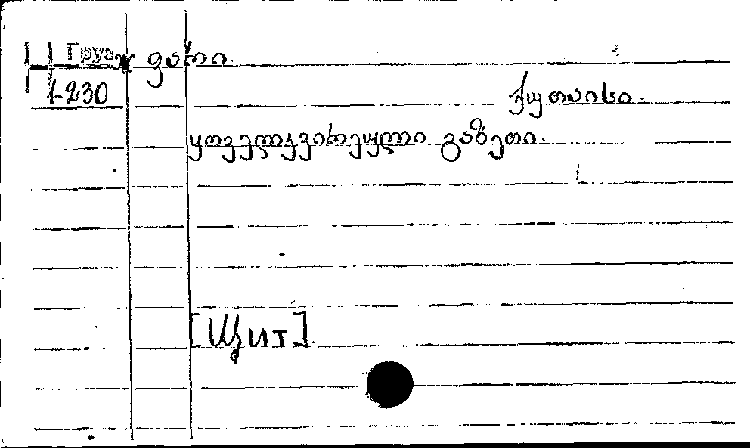 Груз ფარი.
1-230
ქუთაისი.
ყოველკვირეული გაზეთი.
[Щит]